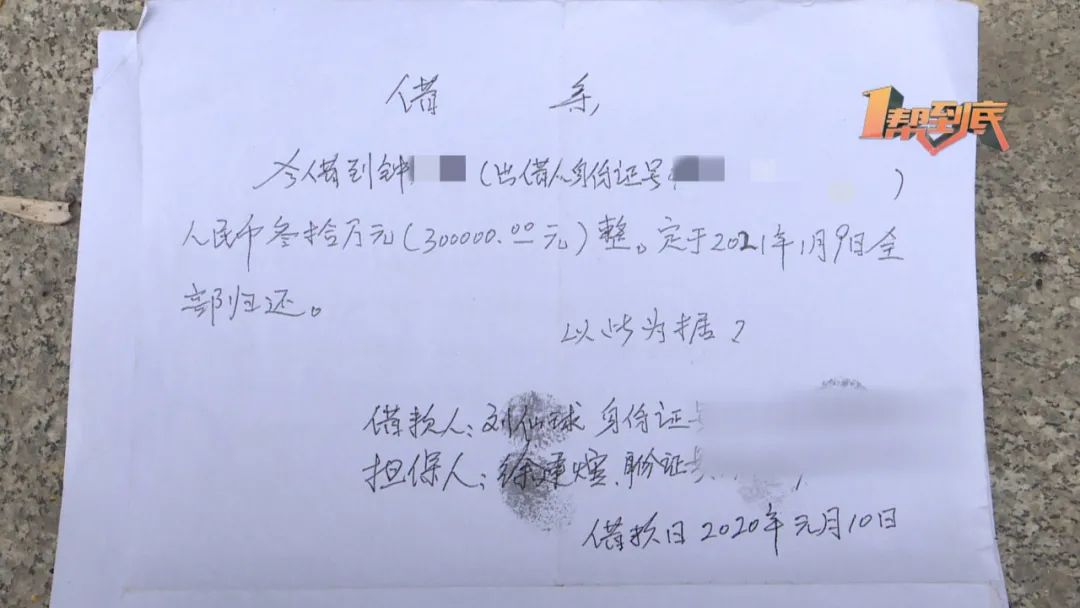 借条
1帮到底
今借到钟（出借人身份证号）
人民币叁拾万元（300000.00元）整。定于2021年1月9日全
部归还。
以此为据
借款人：刘仙球 身份证号
担保人：徐 身份证号
借款日2020年元月10日